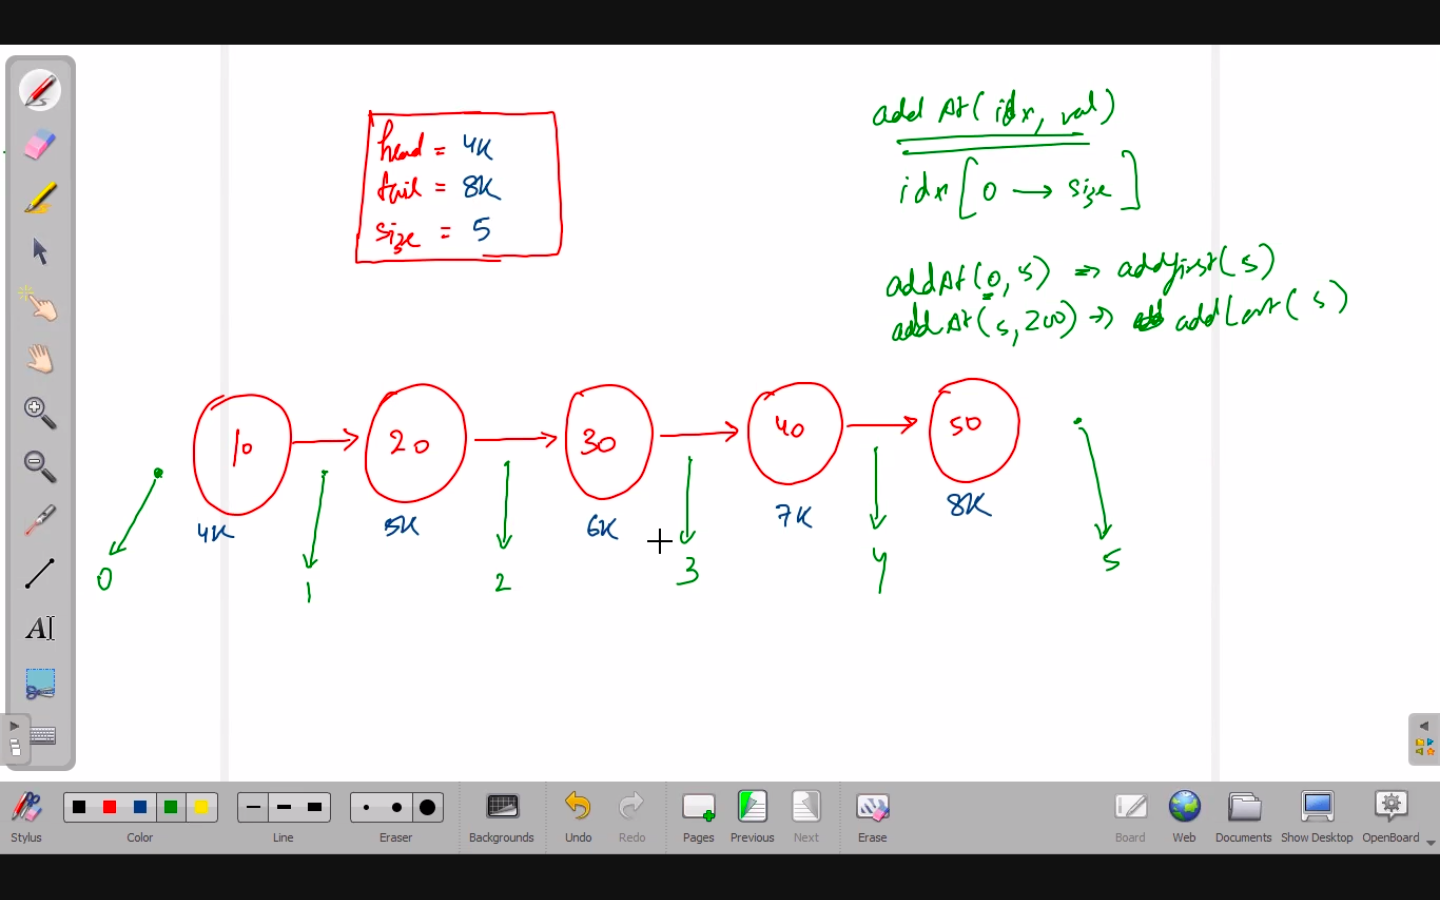 head = 4K
tail = 8K
size = 5
addAt(idx, val)
idx [0 → size]
addAt(0, 5) => addfirst(5)
addAt(5, 200) => addLast(5)
10 → 20 → 30 → 40 → 50
4K 5K 6K 7K 8K
0 1 2 3 4 5
AI
Stylus Color Line Eraser Backgrounds Undo Redo Pages Previous Next Erase Board Web Documents Show Desktop OpenBoard